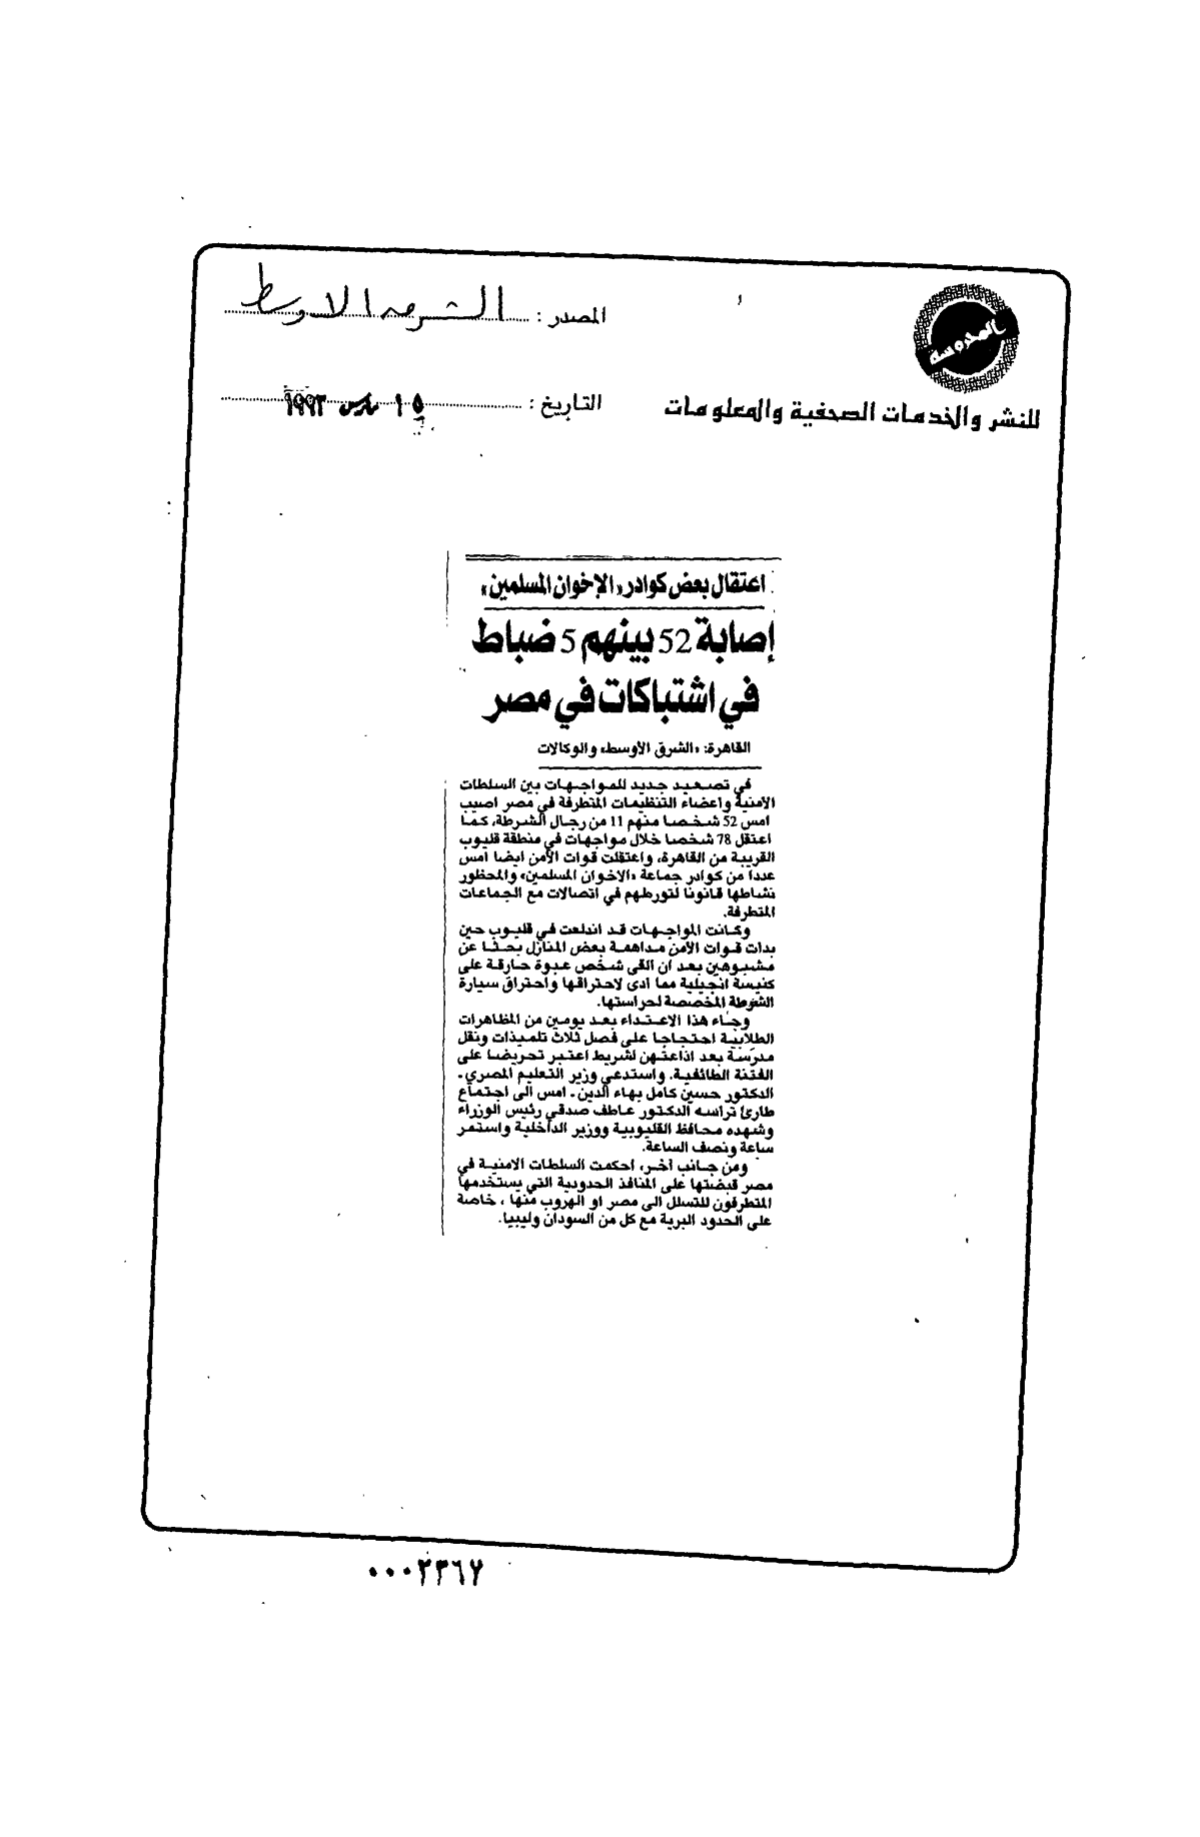 المحروسة
للنشر والخدمات الصحفية والمعلومات
المصدر : الشرق الاوسط
التاريخ : ١٥ مارس ١٩٩٣
اعتقال بعض كوادر «الإخوان المسلمين»
إصابة 52 بينهم 5 ضباط
في اشتباكات في مصر
القاهرة: «الشرق الأوسط» والوكالات
في تصعيد جديد للمواجهات بين السلطات
الأمنية واعضاء التنظيمات المتطرفة في مصر اصيب
امس 52 شخصا منهم 11 من رجال الشرطة، كما
اعتقل 78 شخصا خلال مواجهات في منطقة قليوب
القريبة من القاهرة، واعتقلت قوات الأمن ايضا امس
عددا من كوادر جماعة «الاخوان المسلمين» والمحظور
نشاطها قانونا لتورطهم في اتصالات مع الجماعات
المتطرفة.
وكانت المواجهات قد اندلعت في قليوب حين
بدات قوات الأمن مداهمة بعض المنازل بحثا عن
مشبوهين بعد ان القى شخص عبوة حارقة على
كنيسة انجيلية مما ادى لاحتراقها واحتراق سيارة
الشرطة المخصصة لحراستها.
وجاء هذا الاعتداء بعد يومين من المظاهرات
الطلابية احتجاجا على فصل ثلاث تلميذات ونقل
مدرسة بعد اذاعتهن لشريط اعتبر تحريضا على
الفتنة الطائفية. واستدعي وزير التعليم المصري.
الدكتور حسين كامل بهاء الدين. امس الى اجتماع
طارئ تراسه الدكتور عاطف صدقي رئيس الوزراء
وشهده محافظ القليوبية ووزير الداخلية واستمر
ساعة ونصف الساعة.
ومن جانب آخر، احكمت السلطات الامنية في
مصر قبضتها على المنافذ الحدودية التي يستخدمها
المتطرفون للتسلل الى مصر او الهروب منها ، خاصة
على الحدود البرية مع كل من السودان وليبيا.
٠٠٠٢٣٦٧